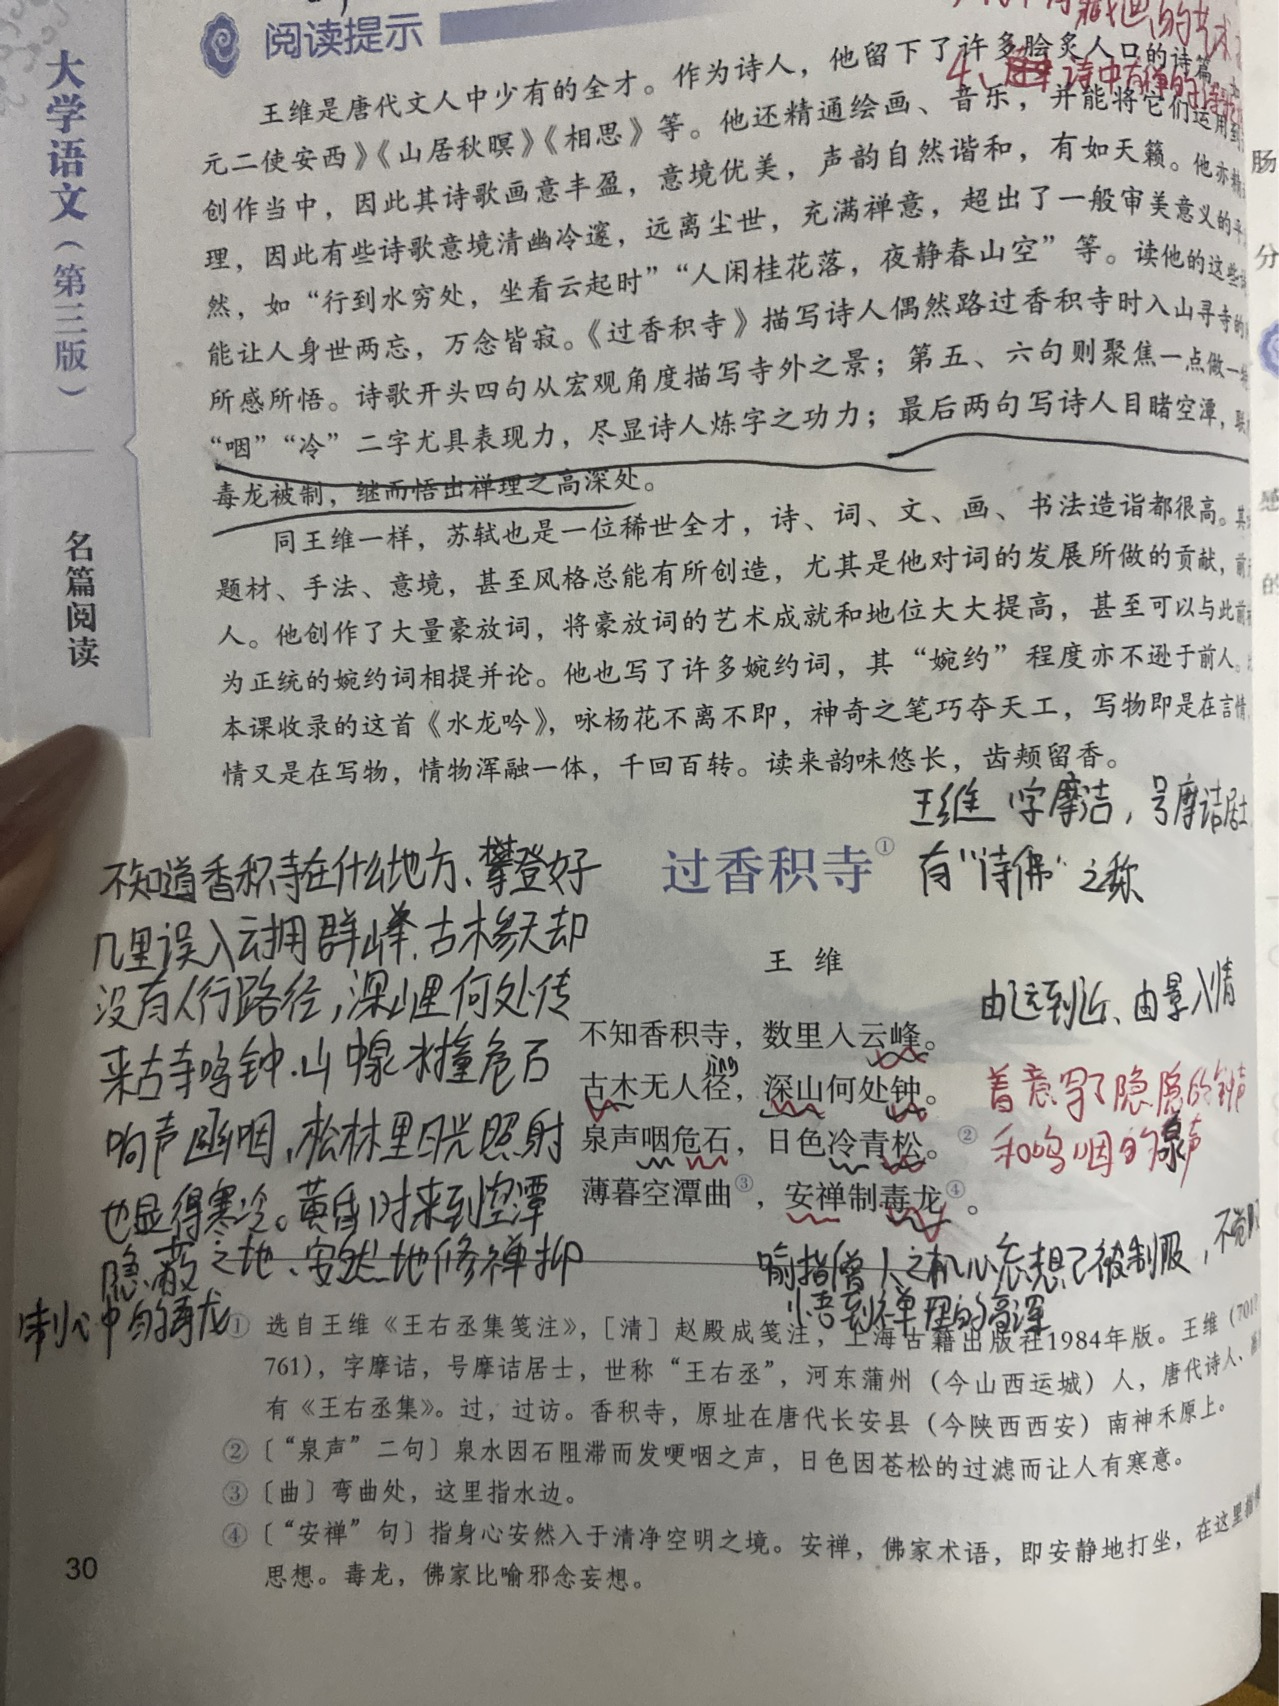 大学语文（第三版）
名篇阅读
阅读提示
王维是唐代文人中少有的全才。作为诗人，他留下了许多脍炙人口的诗篇
4、诗中有禅的
元二使安西》《山居秋暝》《相思》等。他还精通绘画、音乐，并能将它们运用到
创作当中，因此其诗歌画意丰盈，意境优美，声韵自然谐和，有如天籁。他亦精
理，因此有些诗歌意境清幽冷邃，远离尘世，充满禅意，超出了一般审美意义的
然，如“行到水穷处，坐看云起时”“人闲桂花落，夜静春山空”等。读他的这些
能让人身世两忘，万念皆寂。《过香积寺》描写诗人偶然路过香积寺时入山寻寺的
所感所悟。诗歌开头四句从宏观角度描写寺外之景；第五、六句则聚焦一点做一
“咽”“冷”二字尤具表现力，尽显诗人炼字之功力；最后两句写诗人目睹空潭，
毒龙被制，继而悟出禅理之高深处。
同王维一样，苏轼也是一位稀世全才，诗、词、文、画、书法造诣都很高。其
题材、手法、意境，甚至风格总能有所创造，尤其是他对词的发展所做的贡献，前
人。他创作了大量豪放词，将豪放词的艺术成就和地位大大提高，甚至可以与此前
为正统的婉约词相提并论。他也写了许多婉约词，其“婉约”程度亦不逊于前人。
本课收录的这首《水龙吟》，咏杨花不离不即，神奇之笔巧夺天工，写物即是在言情，
情又是在写物，情物浑融一体，千回百转。读来韵味悠长，齿颊留香。
王维 字摩洁，号摩诘居士
过香积寺①
有“诗佛”之称
王 维
不知道香积寺在什么地方、攀登好
几里误入云拥群峰.古木参天却
没有人行路径,深山里何处传
来古寺鸣钟.山中泉水撞危石
响声幽咽,松林里日光照射
也显得寒冷。黄昏时来到空潭
隐蔽之地、安然地修禅抑
制心中的毒龙
由远到近、由景入情
不知香积寺，数里入云峰。
jìng
古木无人径，深山何处钟。
泉声咽危石，日色冷青松。②
薄暮空潭曲③，安禅制毒龙④。
着意写了隐隐的钟声
和呜咽的泉声
喻指僧人之机心妄想已被制服，不觉
悟到禅理的高深
① 选自王维《王右丞集笺注》，［清］赵殿成笺注，上海古籍出版社1984年版。王维（701
761），字摩诘，号摩诘居士，世称“王右丞”，河东蒲州（今山西运城）人，唐代诗人、
有《王右丞集》。过，过访。香积寺，原址在唐代长安县（今陕西西安）南神禾原上。
②〔“泉声”二句〕泉水因石阻滞而发哽咽之声，日色因苍松的过滤而让人有寒意。
③〔曲〕弯曲处，这里指水边。
④〔“安禅”句〕指身心安然入于清净空明之境。安禅，佛家术语，即安静地打坐，在这里指
思想。毒龙，佛家比喻邪念妄想。
30
肠
分
感
的